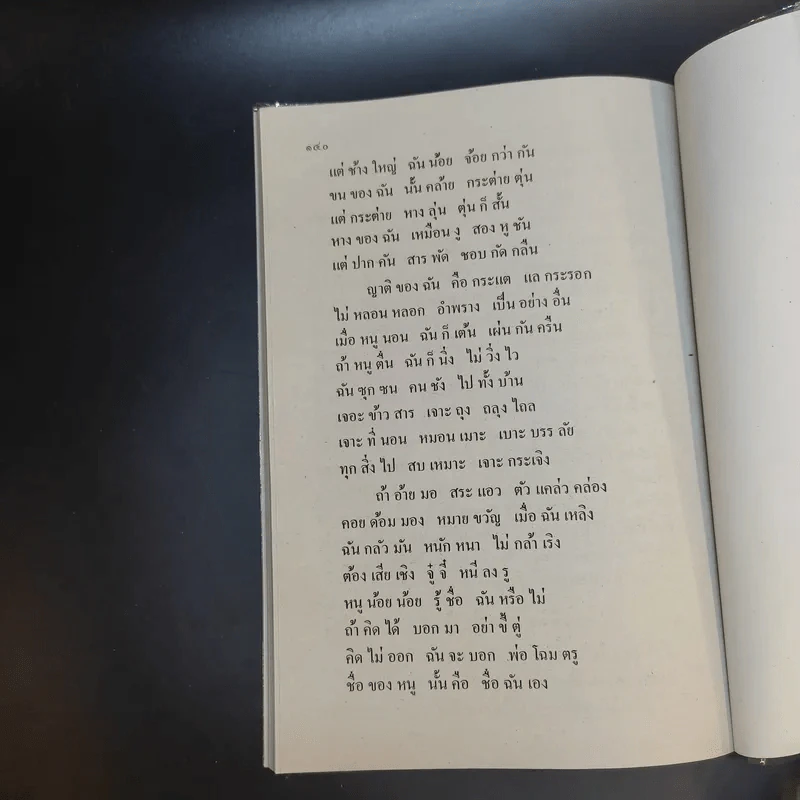 ๑๔๐
แต่ ช้าง ใหญ่ ฉัน น้อย จ้อย กว่า กัน
ขน ของ ฉัน นั้น คล้าย กระต่าย ตุ่น
แต่ กระต่าย หาง ลุ่น ตุ่น ก็ สั้น
หาง ของ ฉัน เหมือน งู สอง หู ชัน
แต่ ปาก คัน สาร พัด ชอบ กัด กลืน
ญาติ ของ ฉัน คือ กระแต แล กระรอก
ไม่ หลอน หลอก อำพราง เป็น อย่าง อื่น
เมื่อ หนู นอน ฉัน ก็ เต้น เผ่น กัน ครืน
ถ้า หนู ตื่น ฉัน ก็ นิ่ง ไม่ วิ่ง ไว
ฉัน ซุก ซน คน ชัง ไป ทั้ง บ้าน
เจอะ ข้าว สาร เจาะ ถุง ถลุง ไถล
เจาะ ที่ นอน หมอน เมาะ เบาะ บรร ลัย
ทุก สิ่ง ไป สบ เหมาะ เจาะ กระเจิง
ถ้า อ้าย มอ สระ แอว ตัว แคล่ว คล่อง
คอย ด้อม มอง หมาย ขวัญ เมื่อ ฉัน เหลิง
ฉัน กลัว มัน หนัก หนา ไม่ กล้า เริง
ต้อง เสีย เชิง จู๋ จี๋ หนี ลง รู
หนู น้อย น้อย รู้ ชื่อ ฉัน หรือ ไม่
ถ้า คิด ได้ บอก มา อย่า ขี้ ตู่
คิด ไม่ ออก ฉัน จะ บอก พ่อ โฉม ตรู
ชื่อ ของ หนู นั้น คือ ชื่อ ฉัน เอง